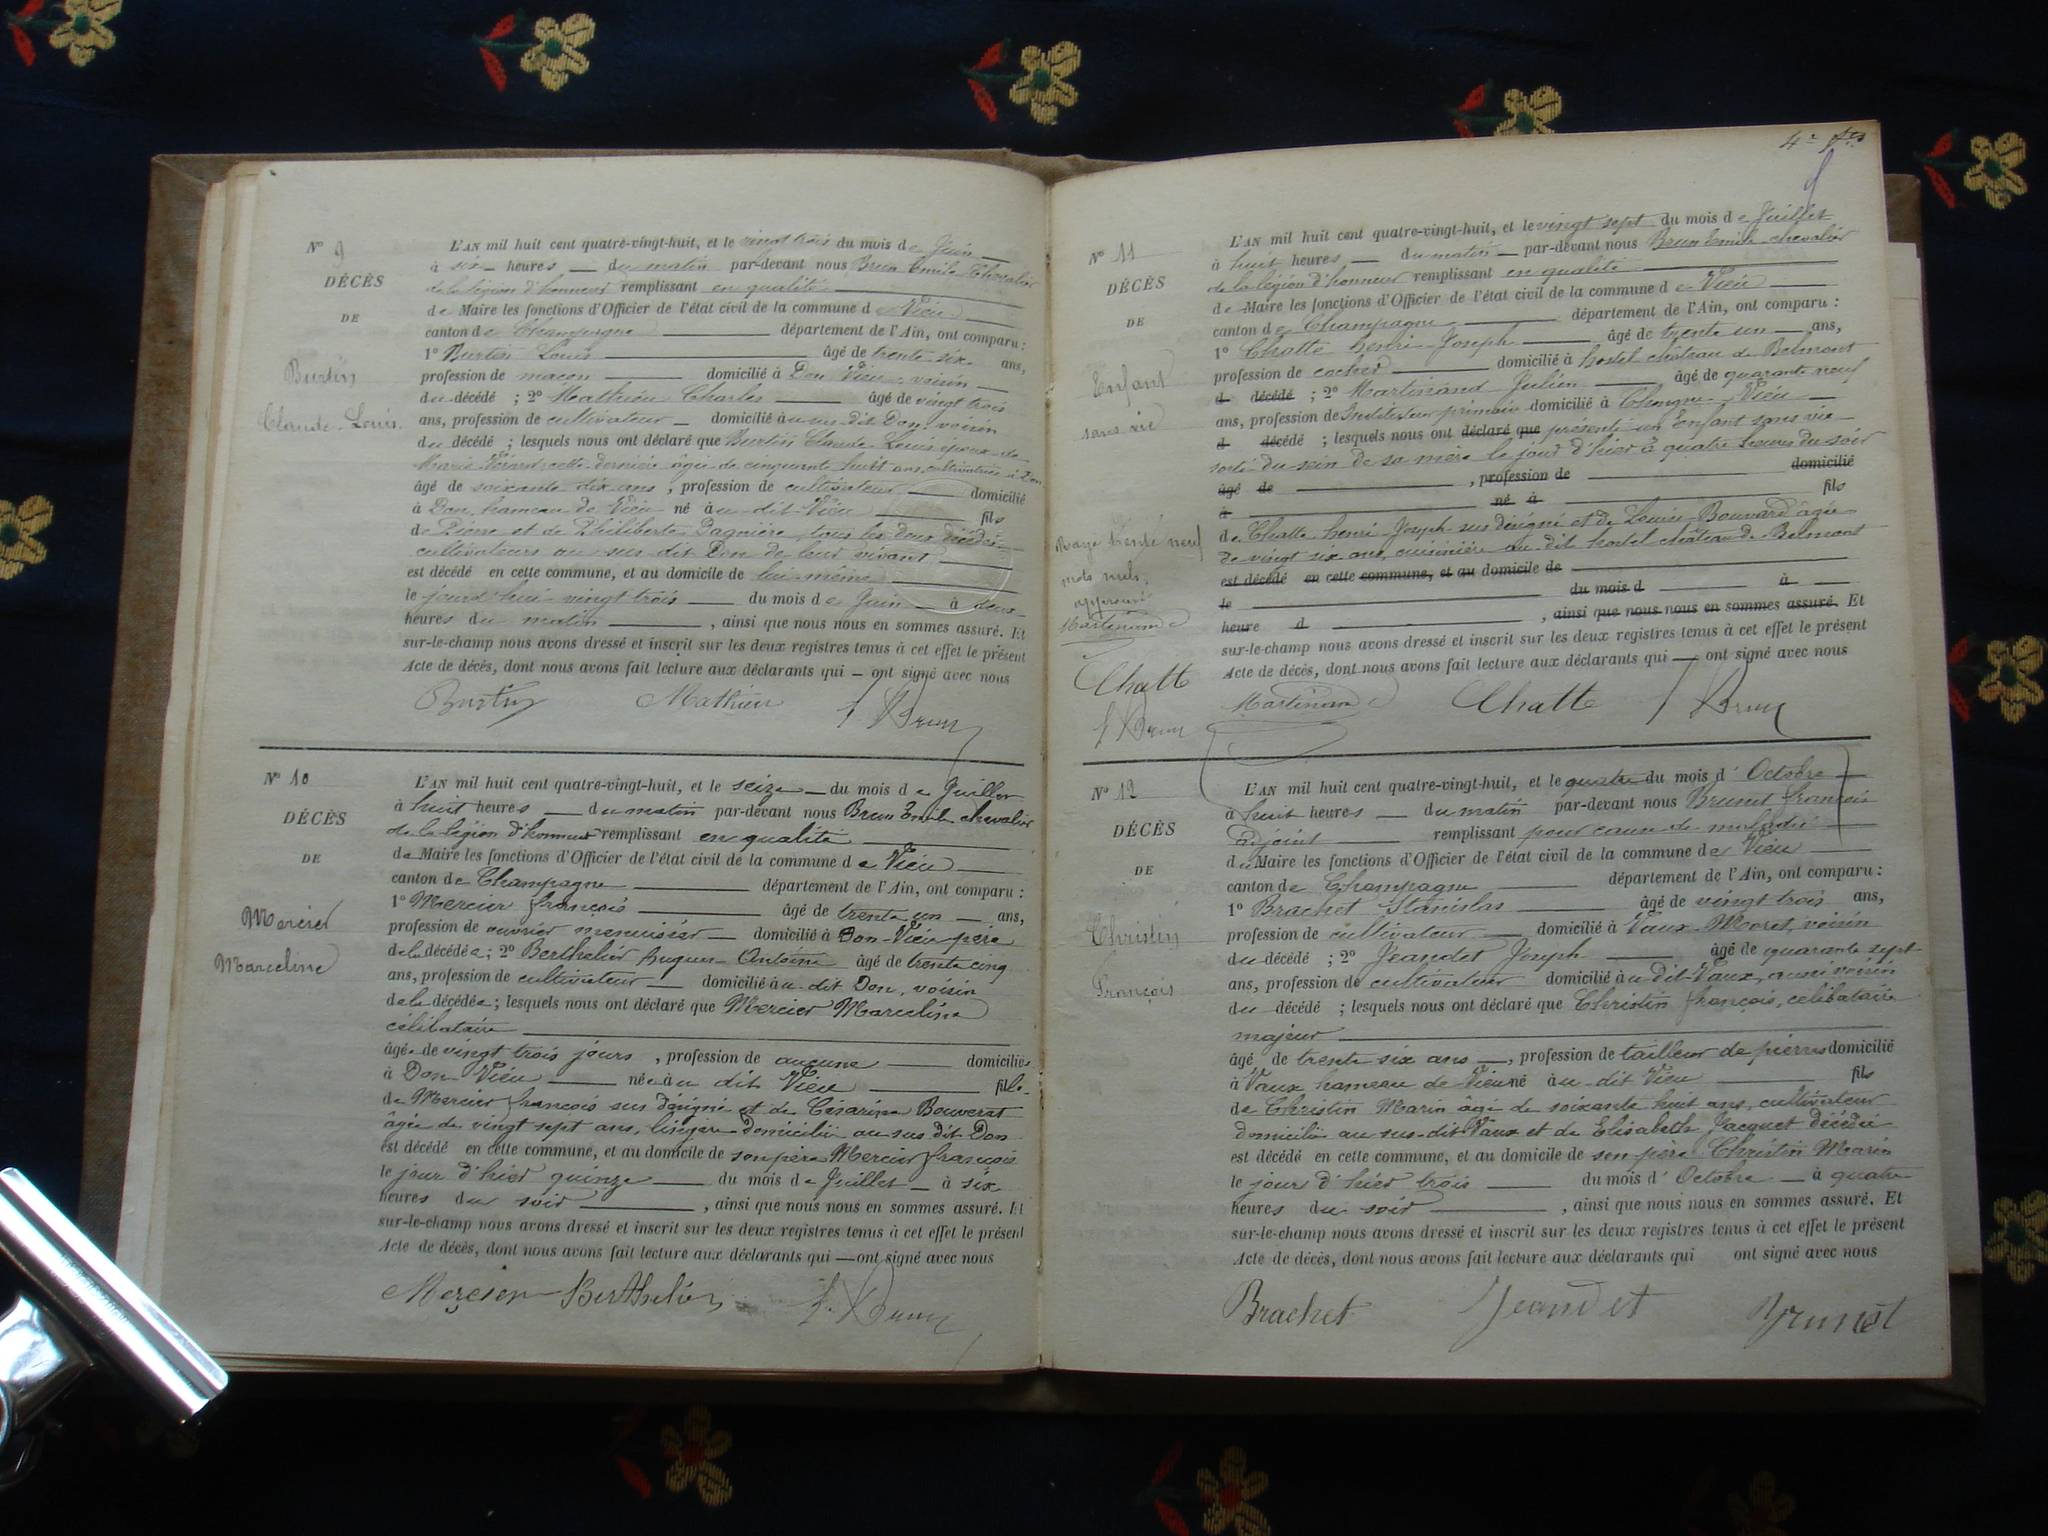 Nº 9
DÉCÈS
DE
Burtin
Claude-Louis.
L'AN mil huit cent quatre-vingt-huit, et le vingt trois du mois de Juin
à six heures du matin par-devant nous Brun Emile Chevalier
de la légion d'honneur remplissant en qualité
de Maire les fonctions d'Officier de l'état civil de la commune de Vieu
canton de Champagne département de l'Ain, ont comparu :
1º Burtin Louis âgé de trente-six ans,
profession de maçon domicilié à Don Vieu, voisin
du décédé ; 2º Mathieu Charles âgé de vingt trois
ans, profession de cultivateur domicilié au sus dit Don, voisin
du décédé ; lesquels nous ont déclaré que Burtin Claude-Louis époux de
Marie cette dernière âgée de cinquante huit ans, cultivatrice à Don
âgé de soixante dix ans, profession de cultivateur domicilié
à Don, hameau de Vieu né à u dit Vieu fils
de Pierre et de Philiberte tous les deux décédés
cultivateurs au sus dit Don de leur vivant
est décédé en cette commune, et au domicile de lui-même
le jourd'hui vingt trois du mois de Juin à deux
heures du matin, ainsi que nous nous en sommes assuré. Et
sur-le-champ nous avons dressé et inscrit sur les deux registres tenus à cet effet le présent
Acte de décès, dont nous avons fait lecture aux déclarants qui ont signé avec nous
Burtin Mathieu E Brun
Nº 10
DÉCÈS
DE
Mercier
Marceline
L'AN mil huit cent quatre-vingt-huit, et le seize du mois de Juillet
à huit heures du matin par-devant nous Brun Emile chevalier
de la légion d'honneur remplissant en qualité
de Maire les fonctions d'Officier de l'état civil de la commune de Vieu
canton de Champagne département de l'Ain, ont comparu :
1º Mercier françois âgé de trente un ans,
profession de ouvrier menuisier domicilié à Don-Vieu père
de la décédée ; 2º Berthelier hugues Antoine âgé de trente cinq
ans, profession de cultivateur domicilié au dit Don, voisin
de la décédée ; lesquels nous ont déclaré que Mercier Marceline
célibataire
âgée de vingt trois jours, profession de aucune domiciliée
à Don Vieu née au dit Vieu fille
de Mercier françois sus désigné et de Césarine Bouverat
âgée de vingt sept ans, lingère domicilié au sus dit Don
est décédé en cette commune, et au domicile de son père Mercier françois
le jour d'hier quinze du mois de Juillet à six
heures du soir, ainsi que nous nous en sommes assuré. Et
sur-le-champ nous avons dressé et inscrit sur les deux registres tenus à cet effet le présent
Acte de décès, dont nous avons fait lecture aux déclarants qui ont signé avec nous
Mercier Berthelier E. Brun
4e
Nº 11
DÉCÈS
DE
Enfant
sans vie
Rayé trente neuf
mots nuls,
approuvé
Martinand
Chatte
E Brun
L'AN mil huit cent quatre-vingt-huit, et le vingt sept du mois de Juillet
à huit heures du matin par-devant nous Brun Emile chevalier
de la légion d'honneur remplissant en qualité
de Maire les fonctions d'Officier de l'état civil de la commune de Vieu
canton de Champagne département de l'Ain, ont comparu :
1º Chatte henri-Joseph âgé de trente un ans,
profession de cocher domicilié à hostel château de Belmont
d décédé ; 2º Martinand Julien âgé de quarante neuf
ans, profession de Instituteur primaire domicilié à Chongne Vieu
d décédé ; lesquels nous ont déclaré que présenté un Enfant sans vie
sorti du sein de sa mère le jour d'hier à quatre heures du soir
âgé de , profession de domicilié
à né à fils
de Chatte henri-Joseph sus désigné et de Louise Bouvard âgée
de vingt six ans, cuisinière au dit hostel château de Belmont
est décédé en cette commune, et au domicile de
le du mois d à
heure d , ainsi que nous nous en sommes assuré. Et
sur-le-champ nous avons dressé et inscrit sur les deux registres tenus à cet effet le présent
Acte de décès, dont nous avons fait lecture aux déclarants qui ont signé avec nous
Martinand Chatte E Brun
Nº 12
DÉCÈS
DE
Christin
François
L'AN mil huit cent quatre-vingt-huit, et le quatre du mois d'Octobre
à huit heures du matin par-devant nous Brunet françois
adjoint remplissant pour cause de maladie
du Maire les fonctions d'Officier de l'état civil de la commune de Vieu
canton de Champagne département de l'Ain, ont comparu :
1º Brachet Stanislas âgé de vingt trois ans,
profession de cultivateur domicilié à Vaux-Moret, voisin
du décédé ; 2º Jeandet Joseph âgé de quarante sept
ans, profession de cultivateur domicilié au dit Vaux, aussi voisin
du décédé ; lesquels nous ont déclaré que Christin françois, célibataire
majeur
âgé de trente six ans, profession de tailleur de pierres domicilié
à Vaux hameau de Vieu né au dit Vieu fils
de Christin Marin âgé de soixante huit ans, cultivateur
domicilié au sus-dit Vaux et de Elisabeth Jacquet décédée
est décédé en cette commune, et au domicile de son père Christin Marin
le jour d'hier trois du mois d'Octobre à quatre
heures du soir, ainsi que nous nous en sommes assuré. Et
sur-le-champ nous avons dressé et inscrit sur les deux registres tenus à cet effet le présent
Acte de décès, dont nous avons fait lecture aux déclarants qui ont signé avec nous
Brachet Jeandet Brunet